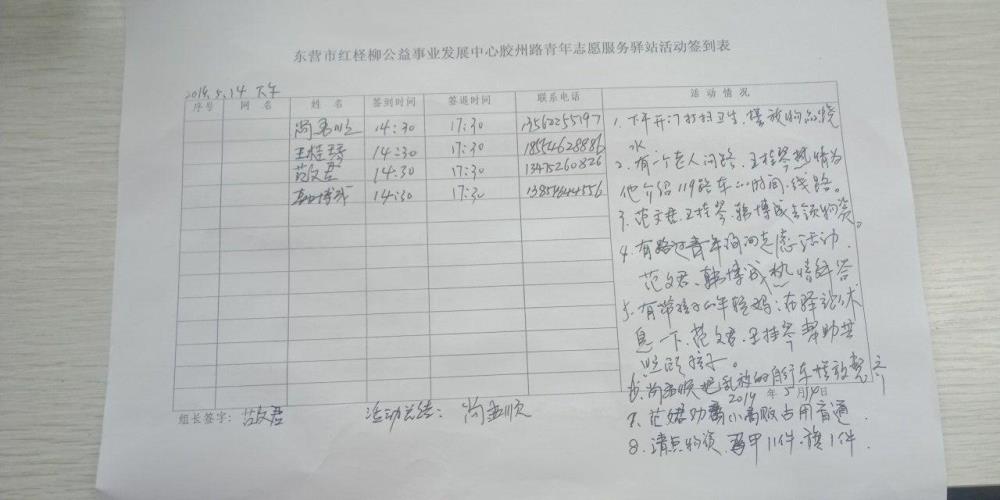 东营市红柽柳公益事业发展中心胶州路青年志愿服务驿站活动签到表
2019.5.14 下午
序号 网 名 姓 名 签到时间 签退时间 联系电话 活 动 情 况
14:30 17:30 13562255197
王桂琴 14:30 17:30 18554628886
范文君 14:30 17:30 13475260826
韩博成 14:30 17:30
1、下午开门打扫卫生、摆放物品烧
水
2、有一个老人问路、王桂琴热情为
他介绍119路车的时间、线路。
3、范文君、王桂琴、韩博成去领物资。
4、有路过青年询问志愿活动、
范文君、韩博成热情解答
5、有带孩子的年轻妈妈在驿站休
息一下、范文君、王桂琴帮助共
照顾孩子。
6、把乱放的自行车摆放整齐
2019 年 5 月 14 日
7、范文君劝离小商贩占用盲道
8、清点物资、马甲11件、旗1件、
组长签字：范文君 活动总结：